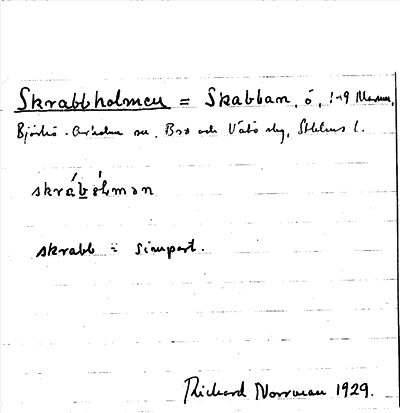 Skrabbholmen = Skabban, ö,
Björkö-Arholma sn, Bro och Vätö slg, Sthlms l.
skrábòlmən
skrabb = simpart.
Richard Norrman 1929.